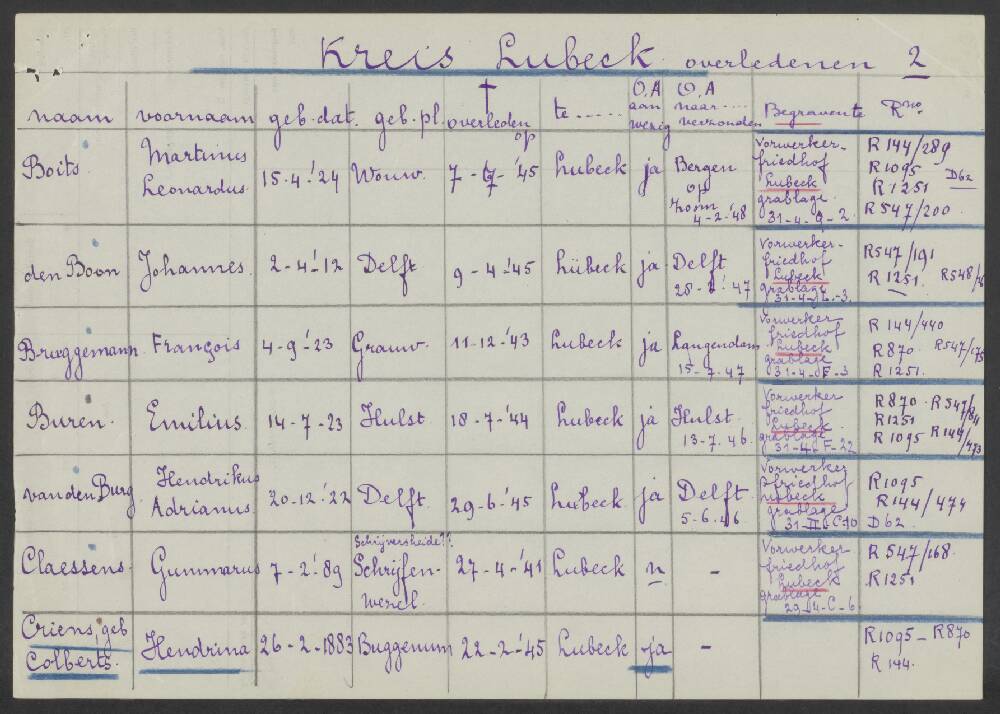 Kreis Lubeck overledenen 2
naam voornaam geb. dat. geb. pl. † overleden op te ...... O.A aan wezig O.A naar .... verzonden Begravente R no.
Boits Martinus Leonardus 15.4.'24 Wouw. 7-7-'45 Lubeck ja Bergen op Zoom 4-2-'48 Vorwerker-friedhof Lubeck grablage 31-4-9-2 R 144/289 R 1095 D62 R 1251 R 547/200
den Boon Johannes 2-4-'12 Delft 9-4-'45 Lübeck ja Delft '47 Vorwerker-friedhof Lubeck grablage R547/191 R 1251
Bruggemann François 4-9-'23 Grauw. 11-12-'43 Lubeck ja Langendam 15-7-47 Vorwerker friedhof Lubeck grablage 31-4-F-3 R 144/440 R870 R547/175 R 1251
Buren. Emilius. 14-7-23 Hulst. 18-7-'44 Lubeck ja Hulst. 13-7.46. Vorwerker friedhof Lubeck grablage 31-4-F-22 R870 R547/84 R1251 R 1095 R144/473
van den Burg Hendrikus Adrianus 20-12-'22 Delft 29-6-'45 Lubeck ja Delft 5-6.46 Vorwerker friedhof Lubeck grablage R1095 R144/474 D62
Claessens Gummarus 7-2-'89 Schijversheide?? Schrijfen-wezel. 27-4-'41 Lubeck n - Vorwerker friedhof Lubeck grablage 29-4-C-6 R 547/168 R1251
Criens, geb Colberts. Hendrina 26-2-1883 Buggenum 22-2-'45 Lubeck ja - R1095-R870 R 144.